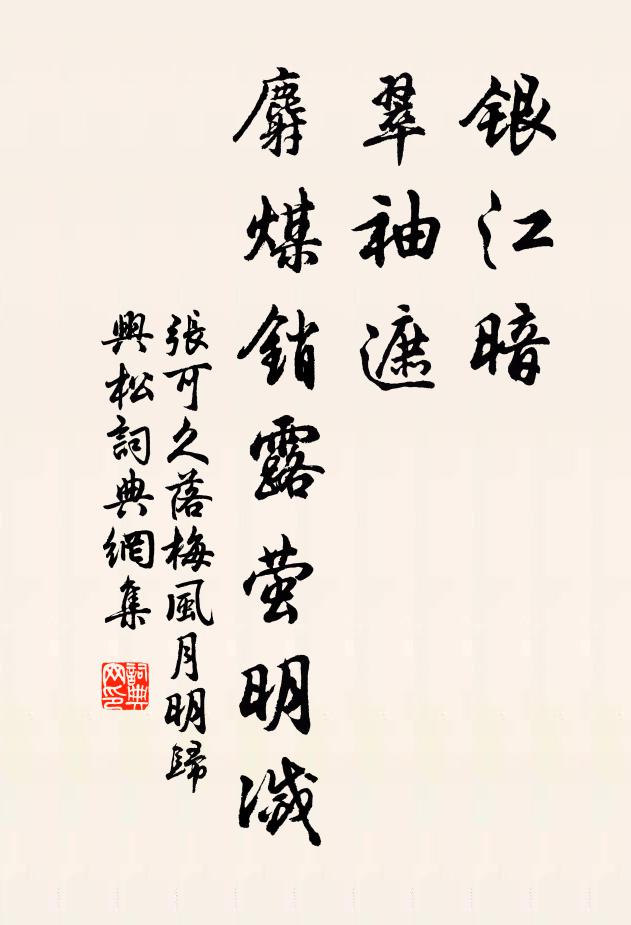 銀江暗
翠袖遮
麝煤銷露萤明滅
張可久落梅風月明歸
興松詞典網集
詞典网印